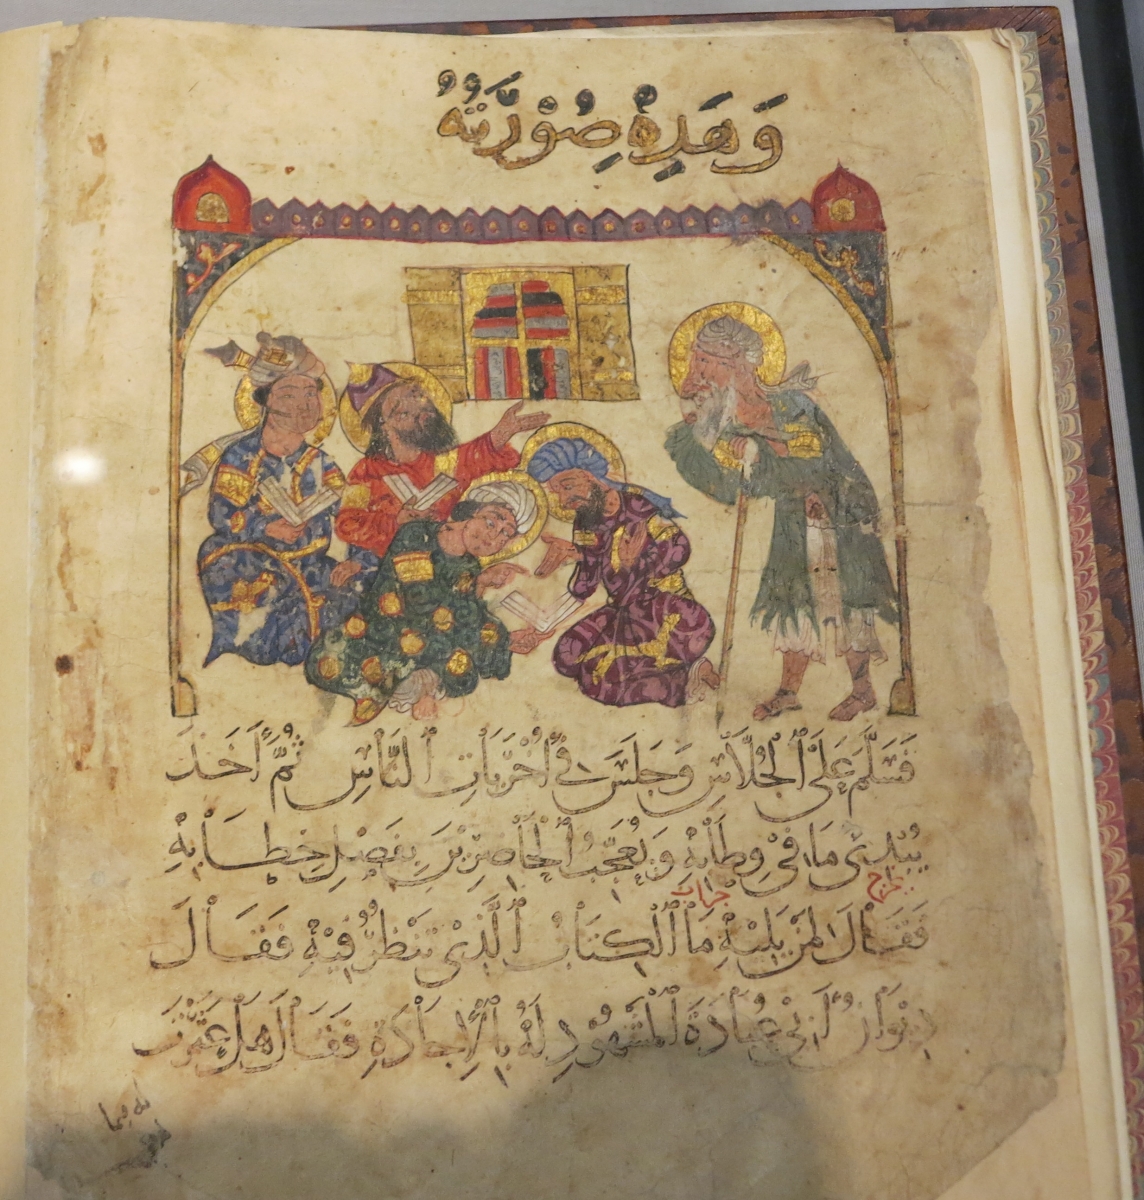 وَهَذِهِ صُوْرَتُهُ
فَسَلَّمَ عَلَى ٱلْجُلَّاسِ وَجَلَسَ فِيْ أُخْرَيَاتِ ٱلنَّاسِ ثُمَّ أَخَذَ
يُبْدِيْ مَا فِيْ وِطَابِهِ وَيُعْجِبُ ٱلْحَاضِرِيْنَ بِفَصْلِ خِطَابِهِ
فَقَالَ لِمَنْ يَلِيْهِ مَا ٱلْكِتَابُ ٱلَّذِيْ تَنْظُرُ فِيْهِ فَقَالَ
دِيْوَانُ أَبِيْ عُبَادَةَ ٱلْمَشْهُوْدِ لَهُ بِٱلْإِجَادَةِ فَقَالَ هَلْ عَثَرْتَ
له فيما